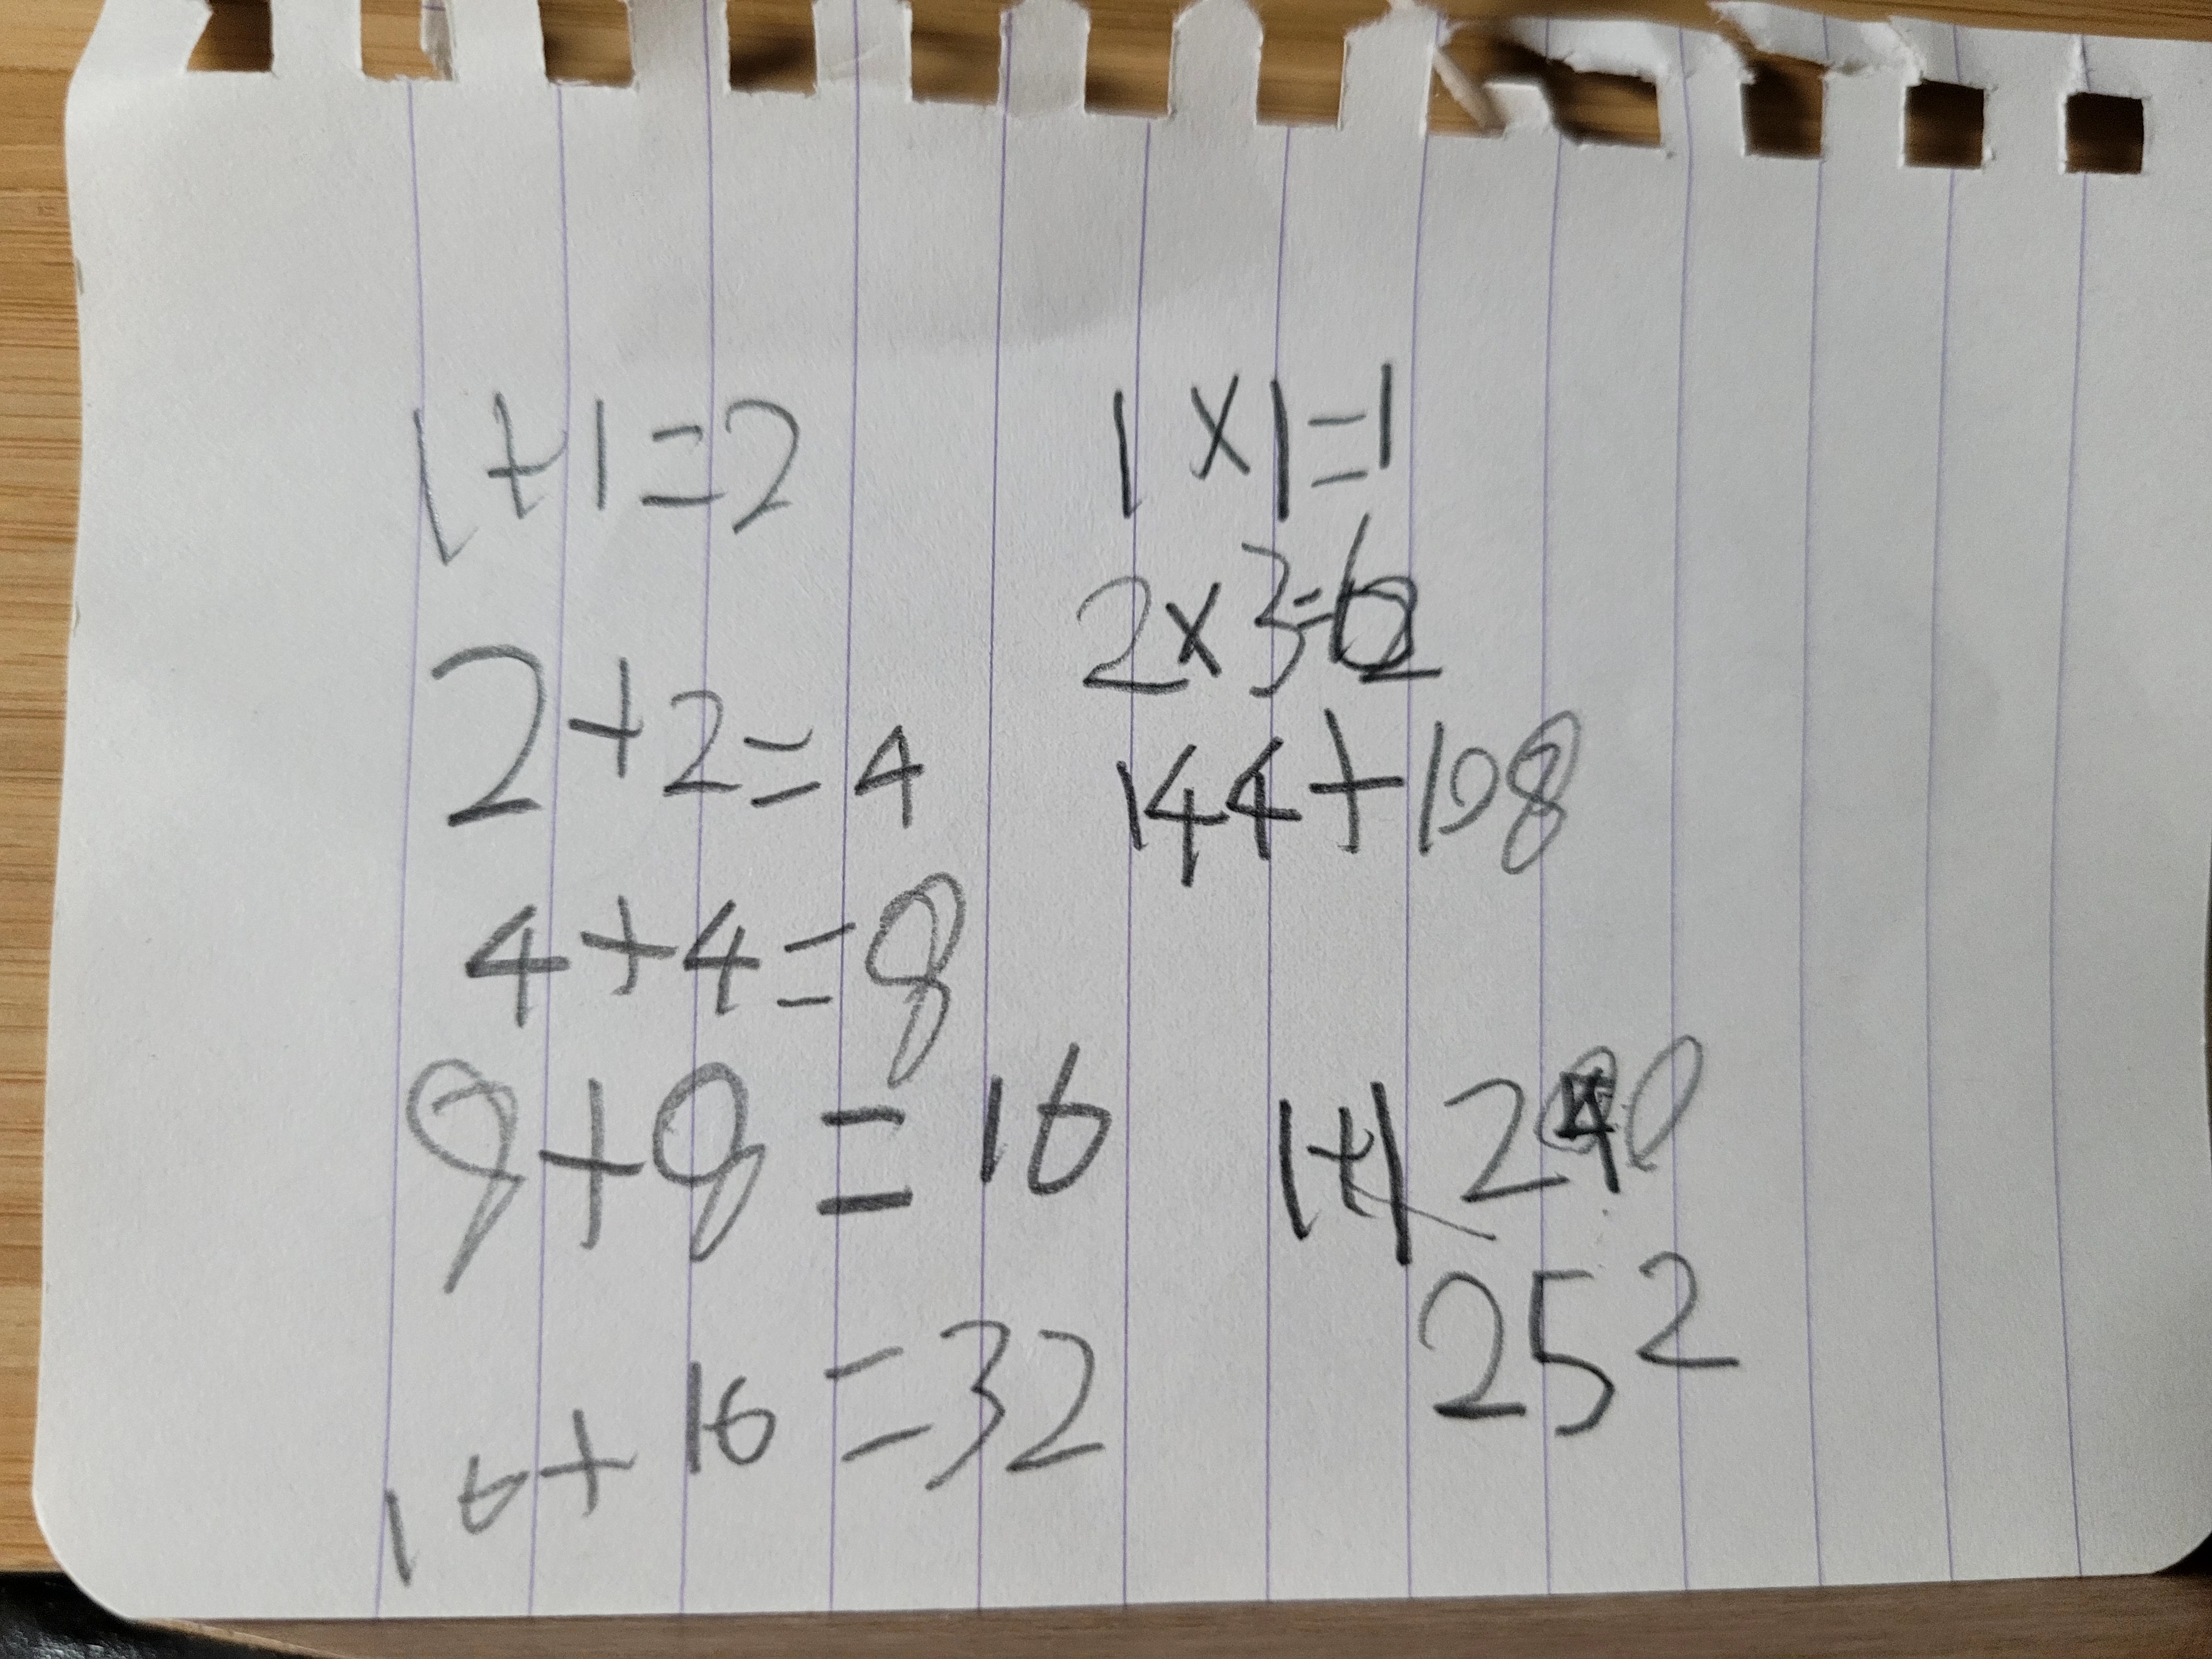 1+1=2
2+2=4
4+4=8
8+8=16
16+16=32
1×1=1
2×3=6
144+108
1+1
252